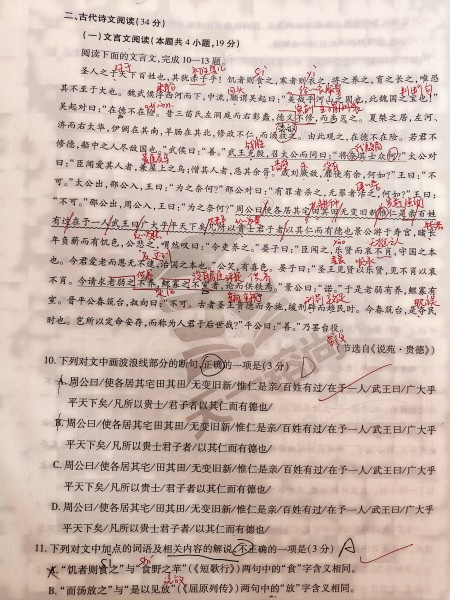 二、古代诗文阅读(34分)
(一)文言文阅读(本题共4小题,19分)
阅读下面的文言文,完成10—13题。
圣人之于天下百姓也,其犹赤子乎!饥者则食之,寒者则衣之,将之养之,育之长之,唯恐
其不至于大也。魏武侯浮西河而下,中流,顾谓吴起曰:“美哉乎河山之固也,此魏国之宝也!”
吴起对曰:“在德不在险。昔三苗氏左洞庭而右彭蠡,德义不修,而禹灭之。夏桀之居,左河、
济而右太华,伊阙在其南,羊肠在其北,修政不仁,而汤放之。由此观之,在德不在险。若君不
修德,船中之人尽敌国也。”武侯曰:“善。”武王克殷,召太公而问曰:“将奈其士众何?”太公对
曰:“臣闻爱其人者,兼屋上之乌;憎其人者,恶其余胥。咸刘厥敌,靡使有余,何如?”王曰:“不
可。”太公出,邵公入,王曰:“为之奈何?”邵公对曰:“有罪者杀之,无罪者活之,何如?”王曰:
“不可。”邵公出,周公入,王曰:“为之奈何?”周公曰使各居其宅田其田无变旧新惟仁是亲百姓
有过在予一人武王曰广大乎平天下矣凡所以贵士君子者以其仁而有德也景公游于寿宫,睹长
年负薪而有饥色,公悲之,喟然叹曰:“令吏养之。”晏子曰:“臣闻之,乐贤而哀不肖,守国之本
也。今君爱老而恩无不逮,治国之本也。”公笑,有喜色。晏子曰:“圣王见贤以乐贤,见不肖以哀
不肖。今请求老弱之不养,鳏寡之不室者,论而供秩焉。”景公曰:“诺。”于是老弱有养,鳏寡有
室。晋平公春筑台,叔向曰:“不可。古者圣王贵德而务施,缓刑辟而趋民时。今春筑台,是夺民
时也。岂所以定命安存,而称为人君于后世哉?”平公曰:“善。”乃罢台役。
(节选自《说苑·贵德》)
10. 下列对文中画波浪线部分的断句,正确的一项是(3分)
A. 周公曰/使各居其宅田其田/无变旧新/惟仁是亲/百姓有过/在予一人/武王曰/广大乎
平天下矣/凡所以贵士/君子者/以其仁而有德也/
B. 周公曰/使各居其宅田其田/无变旧新/惟仁是亲/百姓有过/在予一人/武王曰/广大乎
平天下矣/凡所以贵士君子者/以其仁而有德也/
C. 周公曰/使各居其宅/田其田/无变旧新/惟仁是亲/百姓有过/在予一人/武王曰/广大乎
平天下矣/凡所以贵士/君子者/以其仁而有德也/
D. 周公曰/使各居其宅/田其田/无变旧新/惟仁是亲/百姓有过/在予一人/武王曰/广大乎
平天下矣/凡所以贵士君子者/以其仁而有德也/
11. 下列对文中加点的词语及相关内容的解说,不正确的一项是(3分) A
A. “饥者则食之”与“食野之苹”(《短歌行》)两句中的“食”字含义相同。
B. “而汤放之”与“是以见放”(《屈原列传》)两句中的“放”字含义相同。